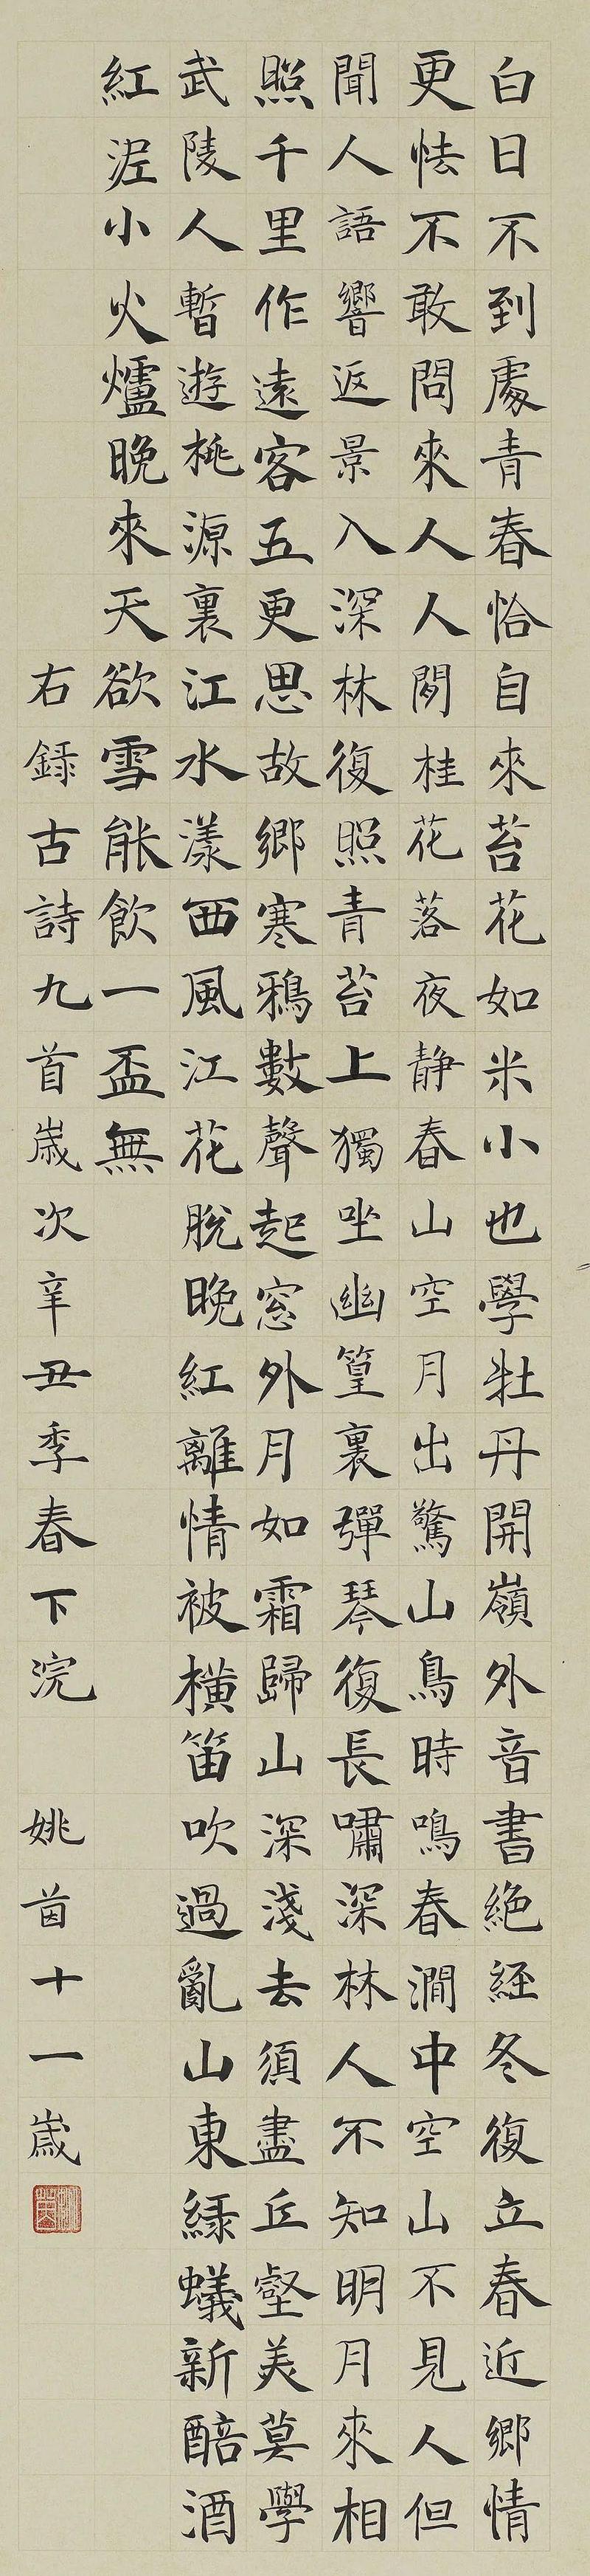 白日不到處青春恰自來苔花如米小也學牡丹開嶺外音書絶經冬復立春近鄉情
更怯不敢問來人人閒桂花落夜静春山空月出驚山鳥時鳴春澗中空山不見人但
聞人語響返景入深林復照青苔上獨坐幽篁裏彈琴復長嘯深林人不知明月來相
照千里作遠客五更思故鄉寒鴉數聲起窓外月如霜歸山深淺去須盡丘壑美莫學
武陵人暫遊桃源裏江水漾西風江花脫晚紅離情被橫笛吹過亂山東緑蟻新醅酒
紅泥小火爐晚來天欲雪能飲一盃無
右録古詩九首歲次辛丑季春下浣 姚茵十一歲